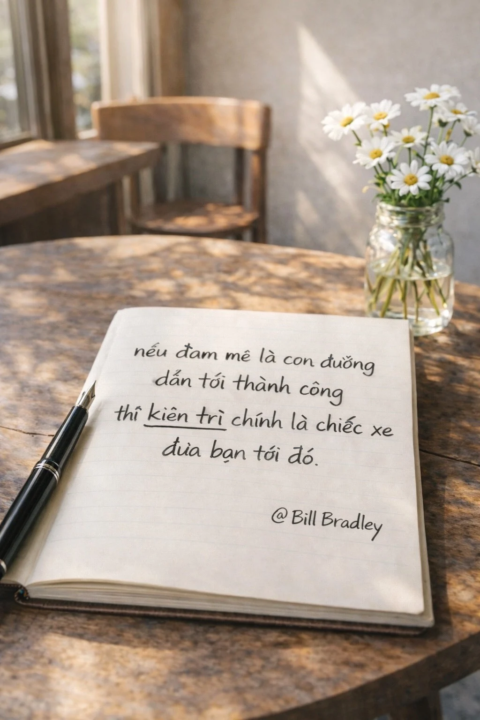 nếu đam mê là con đuờng
dẫn tới thành công
thì kiên trì chính là chiếc xe
đưa bạn tới đó.
@ Bill Bradley